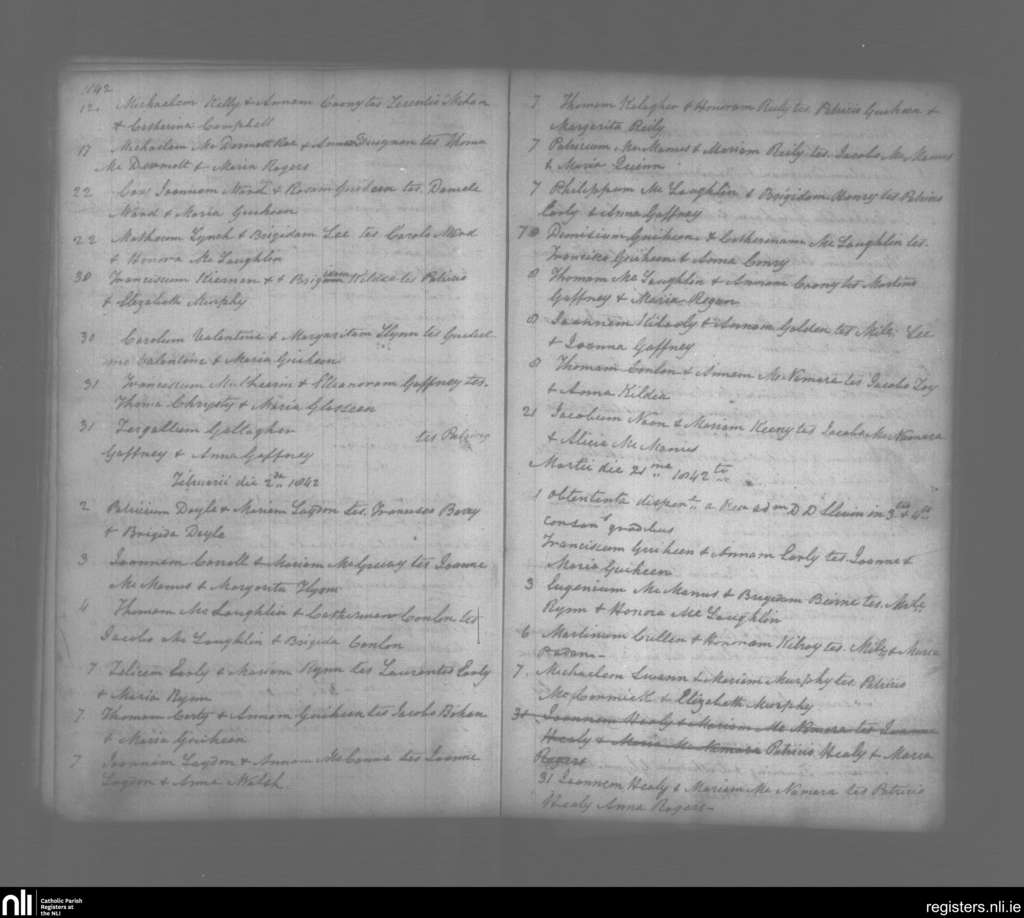 1842
12 Michaelem Kelly & Annam Crony tes Terentio Mehan
& Catherina Campbell
17 Michaelem Mc Dermott Roe & Annam Duignan tes Thoma
Mc Dermott & Maria Rogers
22 Joannem Ward & Rosam Guikeen tes. Daniele
Ward & Maria Guikeen
22 Matheum Lynch & Brigidam Lee tes Carolo Ward
& Honora Mc Laughlin
30 Franciscum Kiernan & & Brigidam Kildea tes Patricio
& Elizabeth Murphy
30 Carolum Valentine & Margaritam Flynn tes Guliel
mo Valentine & Maria Guikeen
31 Franciscum Mulhearn & Elleanoram Gaffney tes.
Thoma Chrysty & Maria Glasseen
31 Fergallum Gallagher
tes Patricio
Gaffney & Anna Gaffney
Februarii die 2da 1842
2 Patricium Doyle & Mariam Lagdon tes. Francisco Barry
& Brigida Doyle
3 Joannem Carroll & Mariam McGreevy tes Joanne
Mc Manus & Margarita Flynn
4 Thomam Mc Laughlin & Catherinam Conlon tes
Jacobo Mc Laughlin & Brigida Conlon
7 Felicem Early & Mariam Rynn tes Laurentio Early
& Maria Rynn
7. Thomam Carty & Annam Guikeen tes Jacobo Bohan
& Maria Guikeen
7 Joannem Lagdon & Annam McCanna tes Joanne
Lagdon & Anna Walsh
7 Thomam Kelegher & Honoram Reily tes. Patricio Guikeen &
Margarita Reily
7 Patricium Mc Manus & Mariam Reily tes. Jacobo Mc Manus
& Maria Quinn
7 Philippum Mc Laughlin & Brigidam Henry tes Patricio
Early & Anna Gaffney
7 8 Dionisium Guikeen & Catherinam Mc Laughlin tes.
Francisco Guikeen & Anna Conry
8 Thomam Mc Laughlin & Annam Crony tes Martino
Gaffney & Maria Regan
8 Joannem Kilroly & Annam Golden tes Mile Lee
& Joanna Gaffney
8 Thomam Conlon & Annam Mc Namara tes Jacobo Foy
& Anna Kildea
21 Jacobum Noon & Mariam Keeny tes Jacobo Mc Namara
& Alicia Mc Manus
Martii die 21ma 1842to
1 Obtententa dispentn a Rev adm D D Slevin in 3tio & 4to
consans gradibus
Franciscum Guikeen & Annam Early tes. Joanne &
Maria Guikeen
3 Eugenium Mc Manus & Brigidam Beirne tes. Mile
Rynn & Honora Mc Laughlin
6 Martinum Cullen & Honoram Kilroy tes. Mile & Maria
Raden
7. Michaelem Swann & Mariam Murphy tes. Patricio
McCormick & Elizabeth Murphy
31 Joannem Healy & Mariam Mc Namara tes Joanne
Healy & Maria Mc Namara Patricio Healy & Maria
Rogers
31 Joannem Healy & Mariam Mc Namara tes Patricio
Healy Anna Rogers
nli
Catholic Parish
Registers at
the NLI
registers.nli.ie